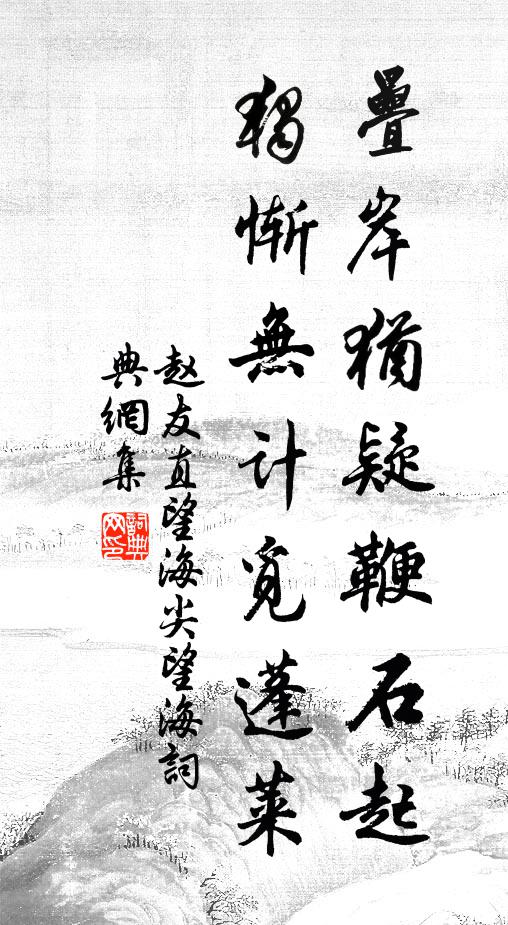 疊岸猶疑鞭石起
獨慚無计覓蓬萊
赵友直望海尖望海詞
典網集
詞典网印